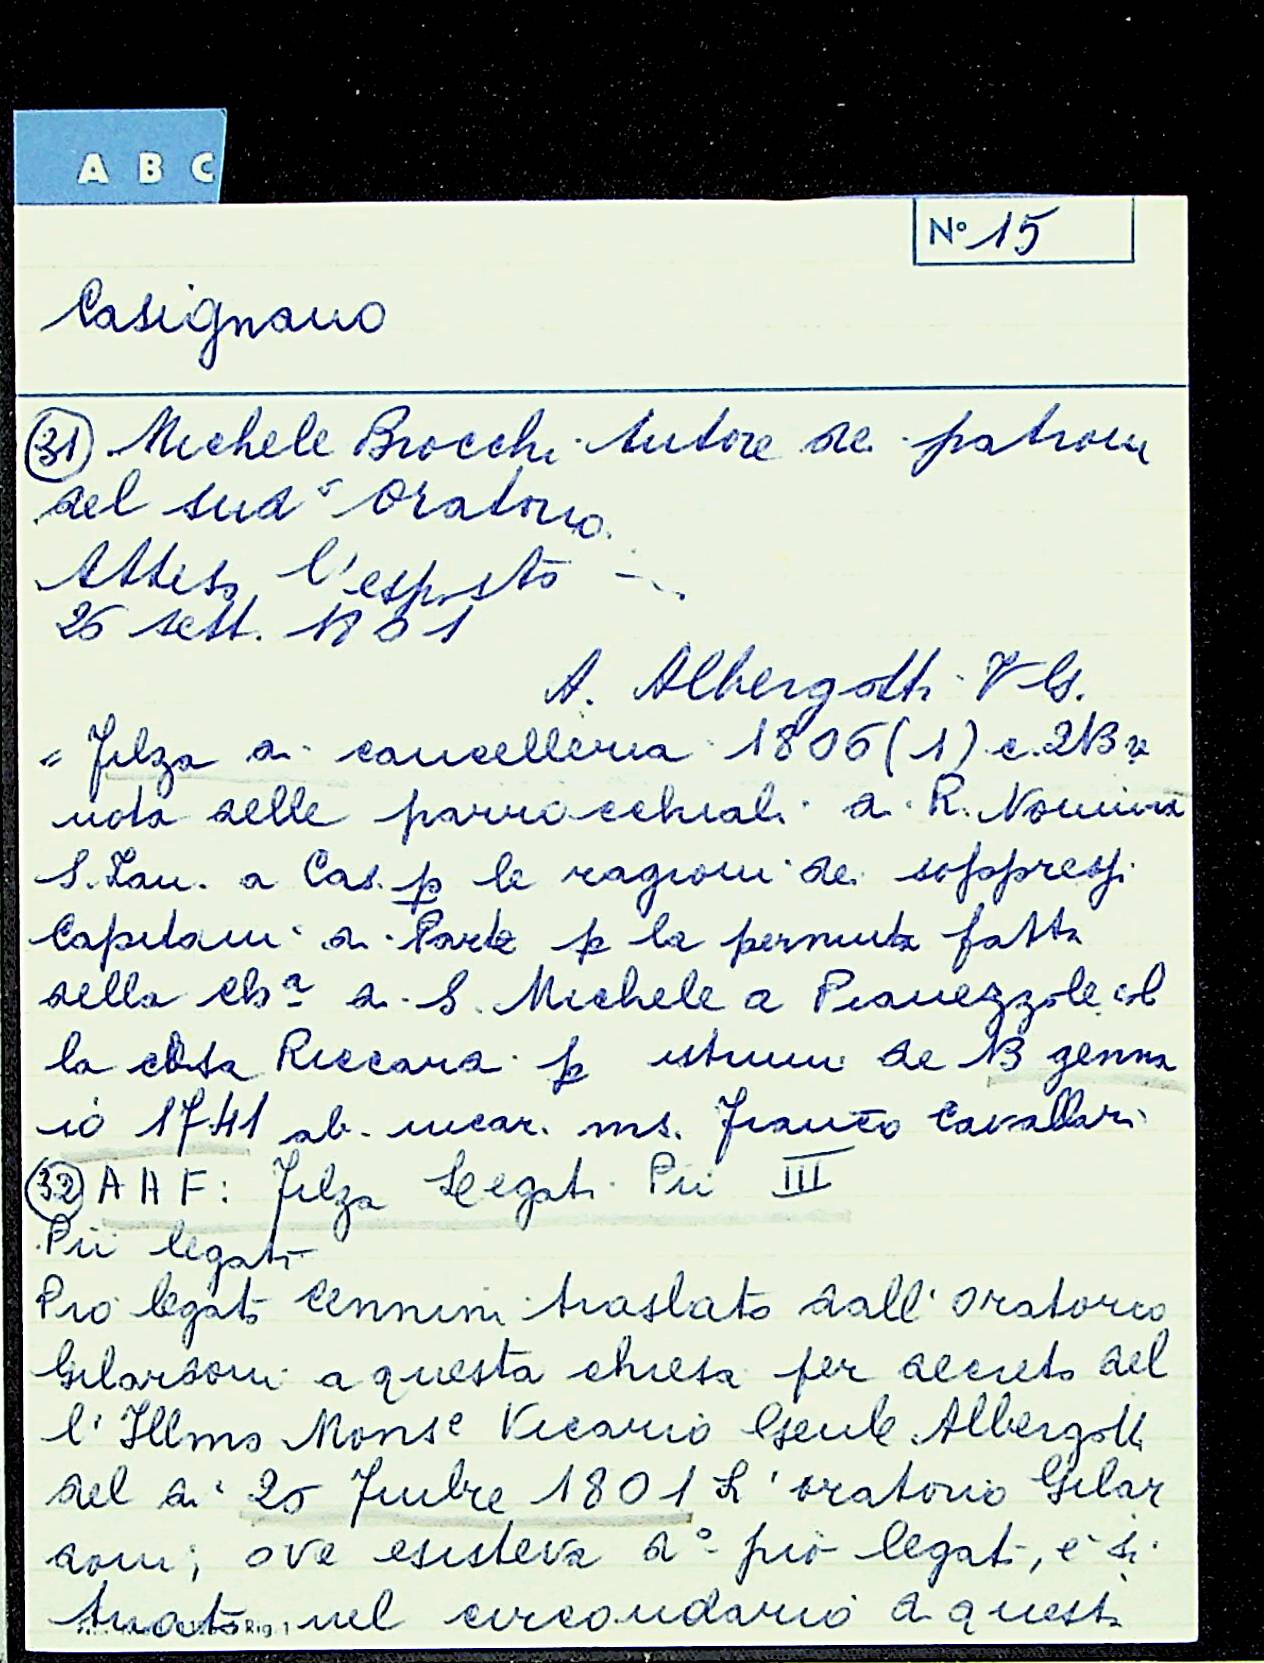 A B C
N° 15
Casignano
31 Michele Brocchi tutore dei patroni
del sud° oratorio.
Atteso l'esposto -..
26 sett. 1801
A. Albergotti V G.
= Filza di cancelleria 1806 (1) c. 213
nota delle parrocchiali di R. Nomina
S. Zan. a Cas. p le ragioni dei soppressi
Capitani di Parte p la permuta fatta
della ch.ª di S. Michele a Pianezzole col
la chsa Riccardi p istrum de 13 genna
io 1741 ab. incar. ms. Franco Cavallari
32 A A F: Filza Legati Pii III
Pii legati
Pio legato Cennini traslato dall' oratorio
Gilardoni a questa chiesa per decreto del
l' Illmo Monse Vicario Genle Albergotti
del di 25 1801 L' oratorio Gilar
doni, ove esisteva d° pio legato, è si
tuato nel circondario di questa
Rig. 1